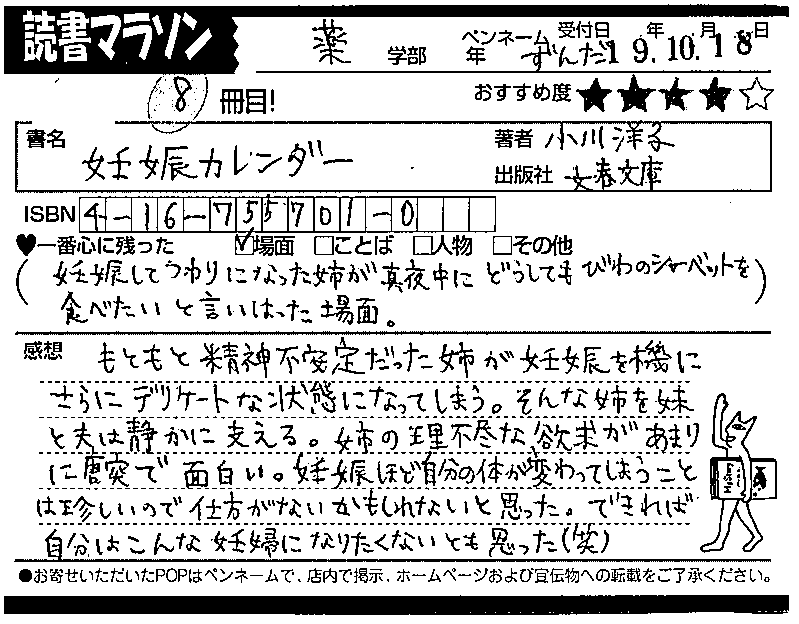 読書マラソン
薬 学部 年 ペンネーム ずんだ 受付日 19年.10月.18日
8 冊目! おすすめ度 ★★★★☆
書名 妊娠カレンダー
著者 小川洋子
出版社 文春文庫
ISBN 4-16-755701-0
♥一番心に残った ☑場面 □ことば □人物 □その他
(妊娠してつわりになった姉が真夜中にどうしてもびわのシャーベットを
食べたいと言いはった場面。)
感想 もともと精神不安定だった姉が妊娠を機に
さらにデリケートな状態になってしまう。そんな姉を妹
と夫は静かに支える。姉の理不尽な欲求があまり
に唐突で面白い。妊娠ほど自分の体が変わってしまうこと
は珍しいので仕方がないかもしれないと思った。できれば
自分はこんな妊婦になりたくないとも思った(笑)
●お寄せいただいたPOPはペンネームで、店内で掲示、ホームページおよび宣伝物への転載をご了承ください。